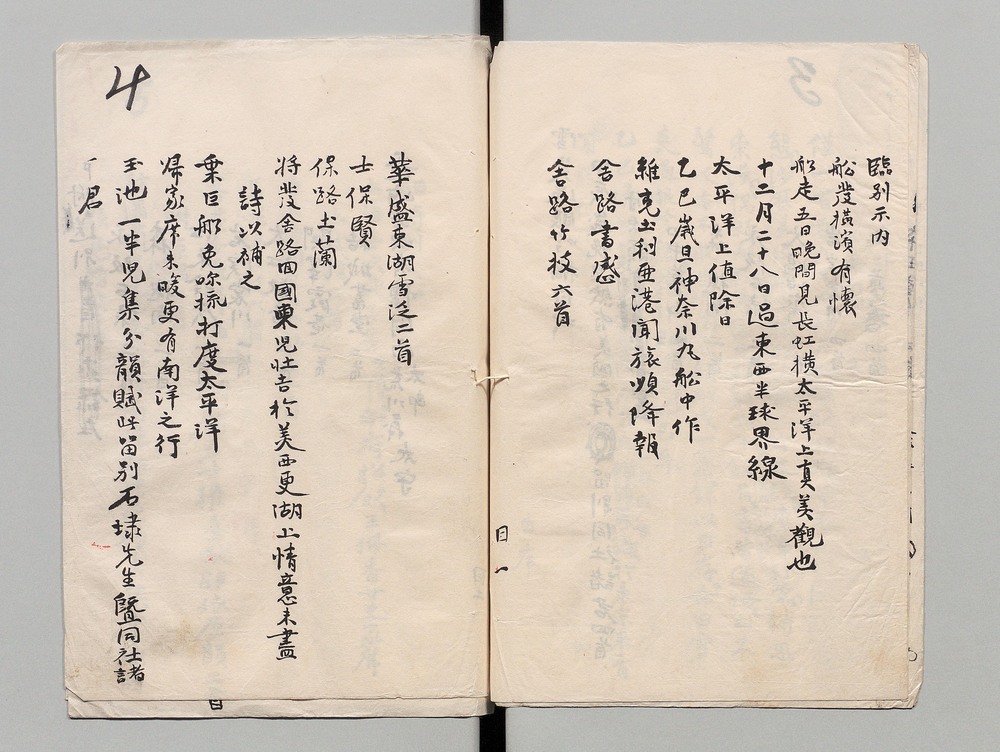 3
臨別示内
船發橫濱有懷
船走五日晩間見長虹橫太平洋上真美觀也
十二月二十八日過東西半球界線
太平洋上值除日
乙巳歲旦神奈川丸船中作
維克土利亜港聞旅順降報
舍路書感
舍路竹枝六首
目一
4
華盛東湖雪泛二首
士保賢
保路士蘭
將發舍路回國東児壮吉於美西更湖上情意未盡
詩以補之
乗巨船免嗱掋打度太平洋
帰家席未暖更有南洋之行
玉池一半児集分韻賦此留別石埭先生曁同社諸
君
目